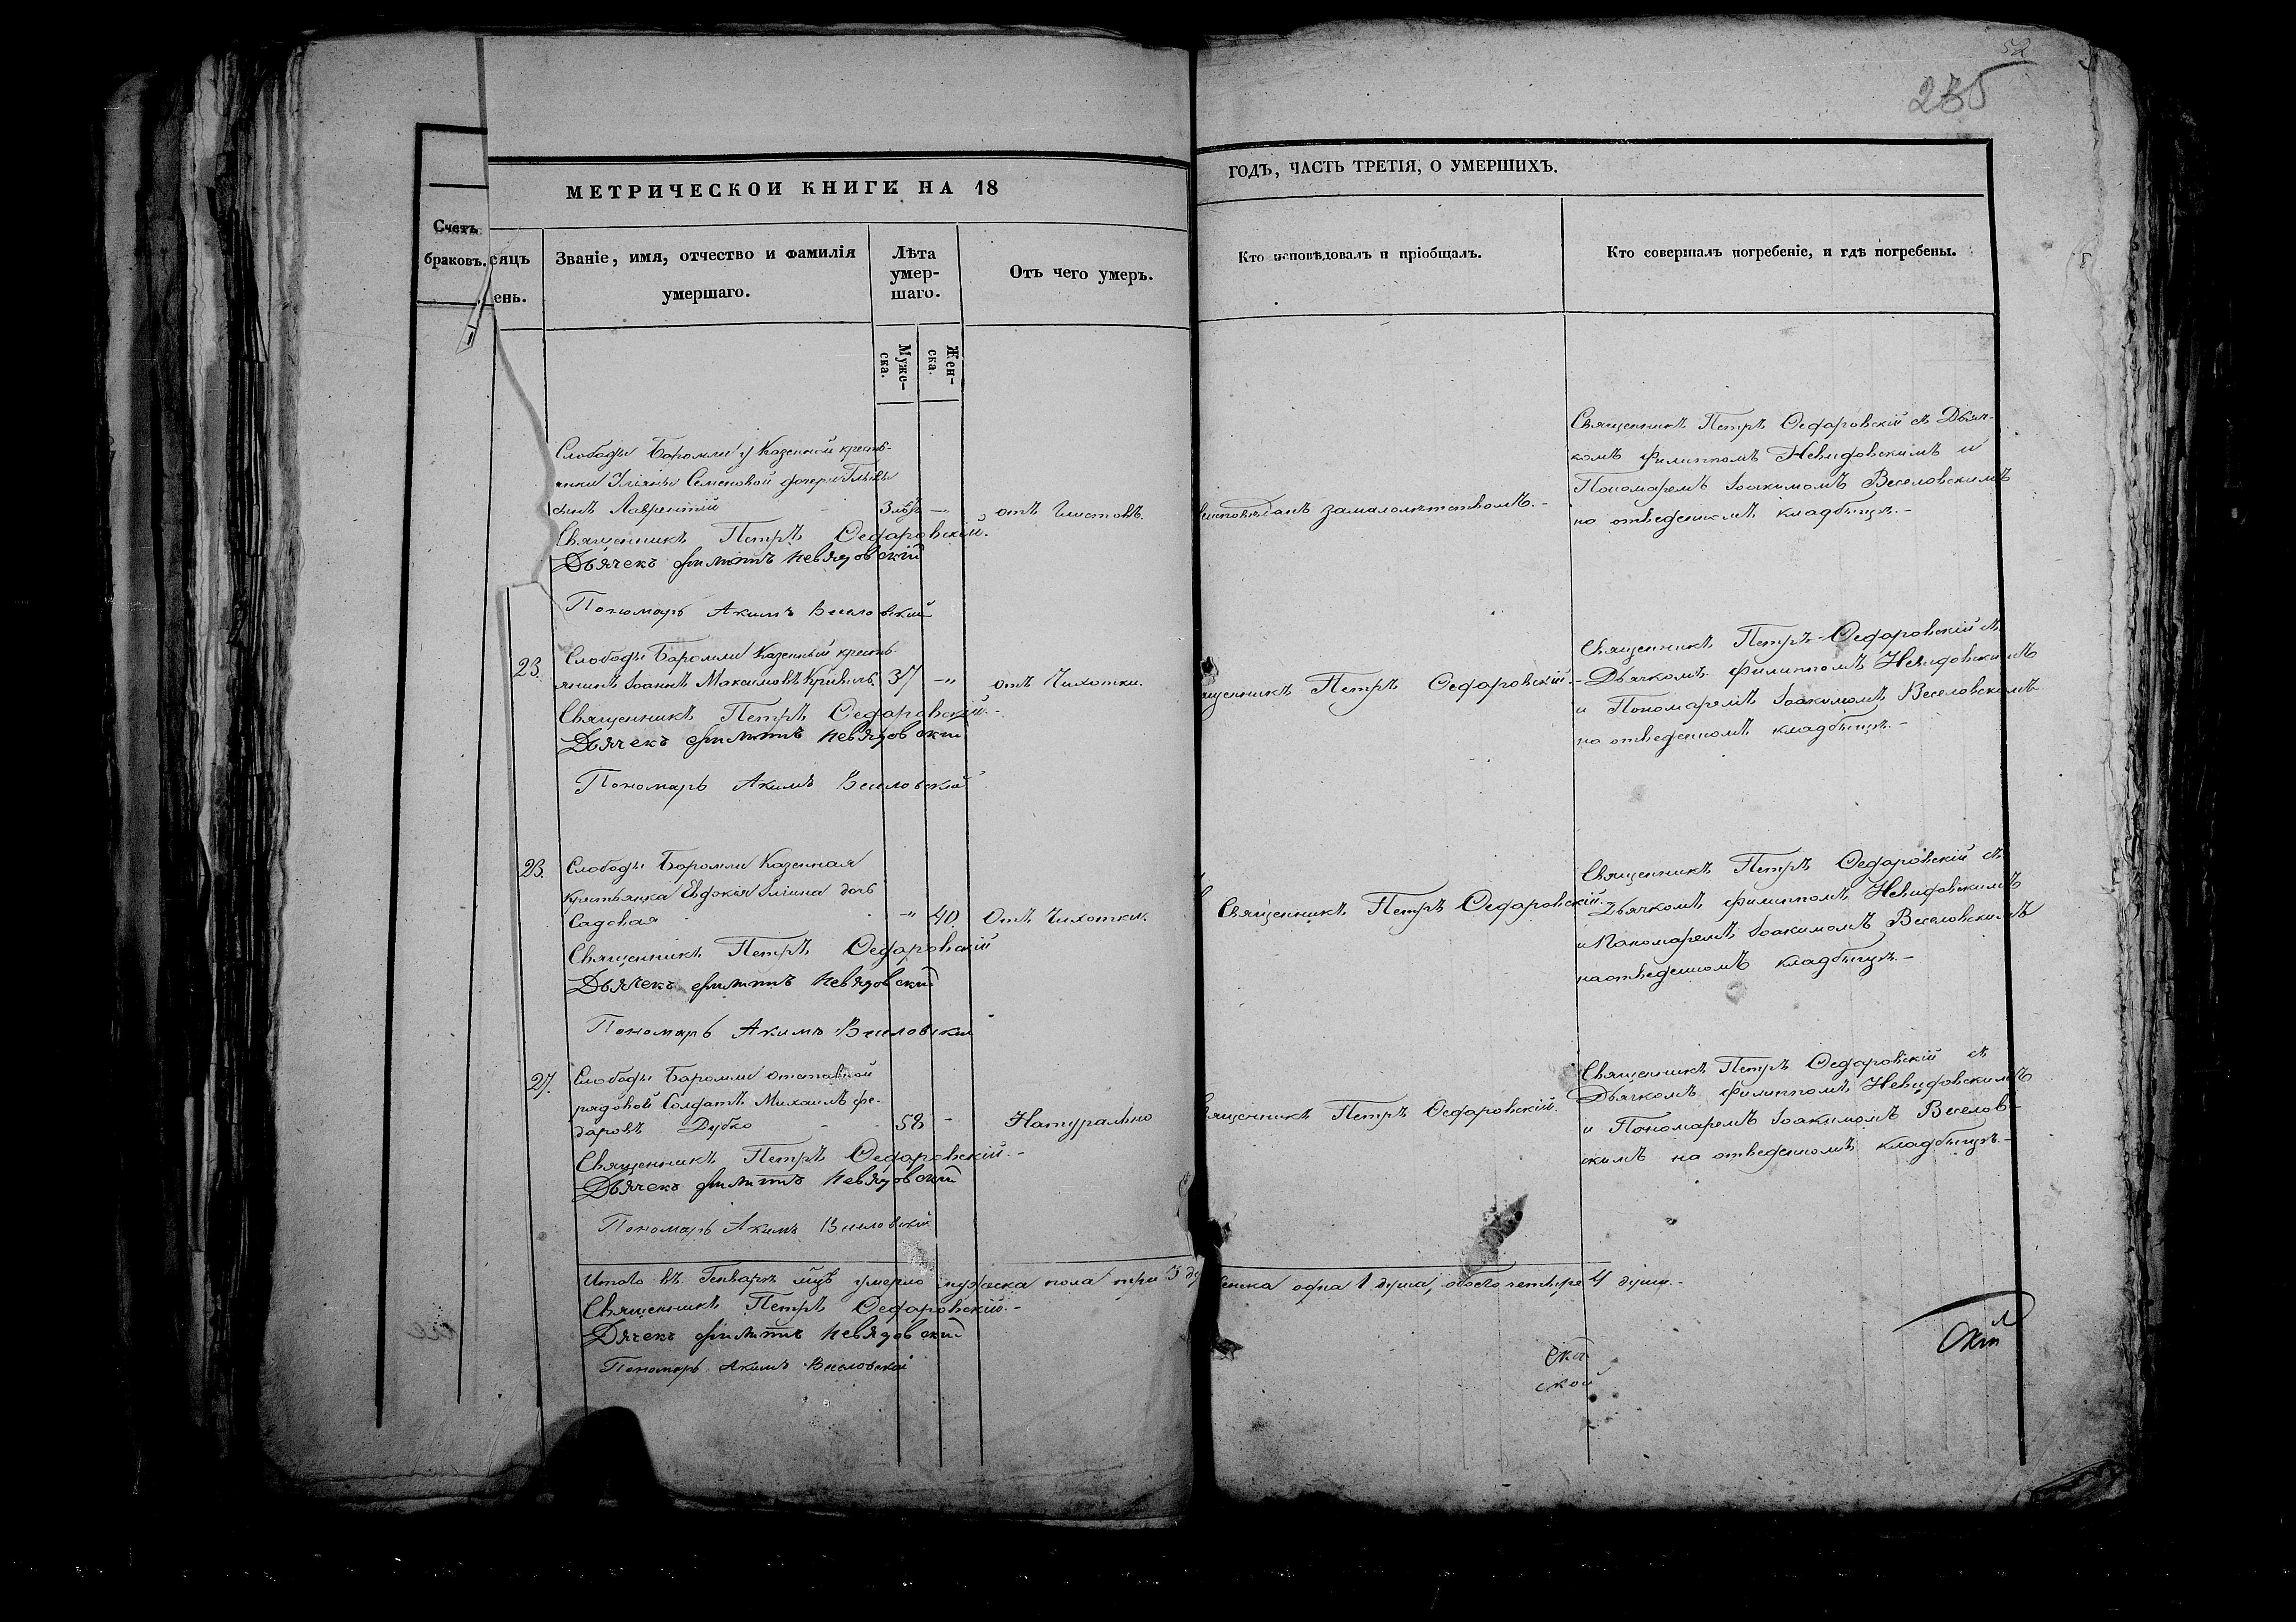 52
235
МЕТРИЧЕСКОЙ КНИГИ НА 18
ГОДЪ, ЧАСТЬ ТРЕТІЯ, О УМЕРШИХЪ.
Счетъ
браковъ.
сяцъ
ень.
Званіе, имя, отчество и фамилія
умершаго.
Лѣта
умер-
шаго.
Муже-
ска.
Жен-
ска.
Отъ чего умеръ.
Кто исповѣдовалъ и пріобщалъ.
Кто совершалъ погребеніе, и гдѣ погребены.
Слободы Боромли у Казенной кресть-
янки Семеновой дочери
сынъ Лаврентій 3 -"
Священникъ Петръ Федоровскій.
Дьячекъ Филиппъ Невядовский
Пономарь Акимъ Веселовский
отъ Глистовъ.
неисповѣданъ замалолѣтствомъ.-
Священникъ Петръ Федоровскій съ Дьяч-
комъ Филиппомъ Невидовскимъ и
Пономаремъ Іоакимомъ Веселовскимъ
на отведенномъ кладбищѣ.-
23. Слободы Боромли Казенный кресть-
янинъ Іоаннъ Максимовъ 37 -"
Священникъ Петръ Федоровскій.-
Дьячекъ Филиппъ Невядовский
Пономарь Акимъ Веселовский
отъ Чихотки.
ященникъ Петръ Федоровскій.-
Священникъ Петръ Федоровскій съ
Дьячкомъ Филиппомъ Невидовскимъ
и Пономаремъ Іоакимомъ Веселовскимъ
на отведенномъ кладбищѣ.-
23. Слободы Боромли Казенная
крестьянка Евдокія Іліина дочь
Садовая -" 40.
Священникъ Петръ Федоровскій
Дьячекъ Филиппъ Невядовский
Пономарь Акимъ Веселовский
Отъ Чихотки.
Священникъ Петръ Федоровскій.
Священникъ Петръ Федоровскій съ
Дьячкомъ Филиппомъ Невидовскимъ
и Пономаремъ Іоакимомъ Веселовскимъ
на отведенномъ кладбищѣ.-
27. Слободы Боромли отставной
рядовой Солдатъ Михаилъ Фе-
доровъ Дубко - 58 -
Священникъ Петръ Федоровскій.-
Дьячекъ Филиппъ Невядовский
Пономарь Акимъ Веселовский
Натурально
вященникъ Петръ Федоровскій.
Священникъ Петръ Федоровскій съ
Дьячкомъ Филиппомъ Невидовскимъ
и Пономаремъ Іоакимомъ Веселов-
скимъ на отведенномъ кладбищѣ.-
Итого въ Генварѣ мцѣ умерло мужеска пола три 3 ду женска одна 1 душа, обоего четыре 4 души.-
Священникъ Петръ Федоровскій.-
Дячекъ Филиппъ Невядовский
Пономарь Акимъ Веселовский
ской